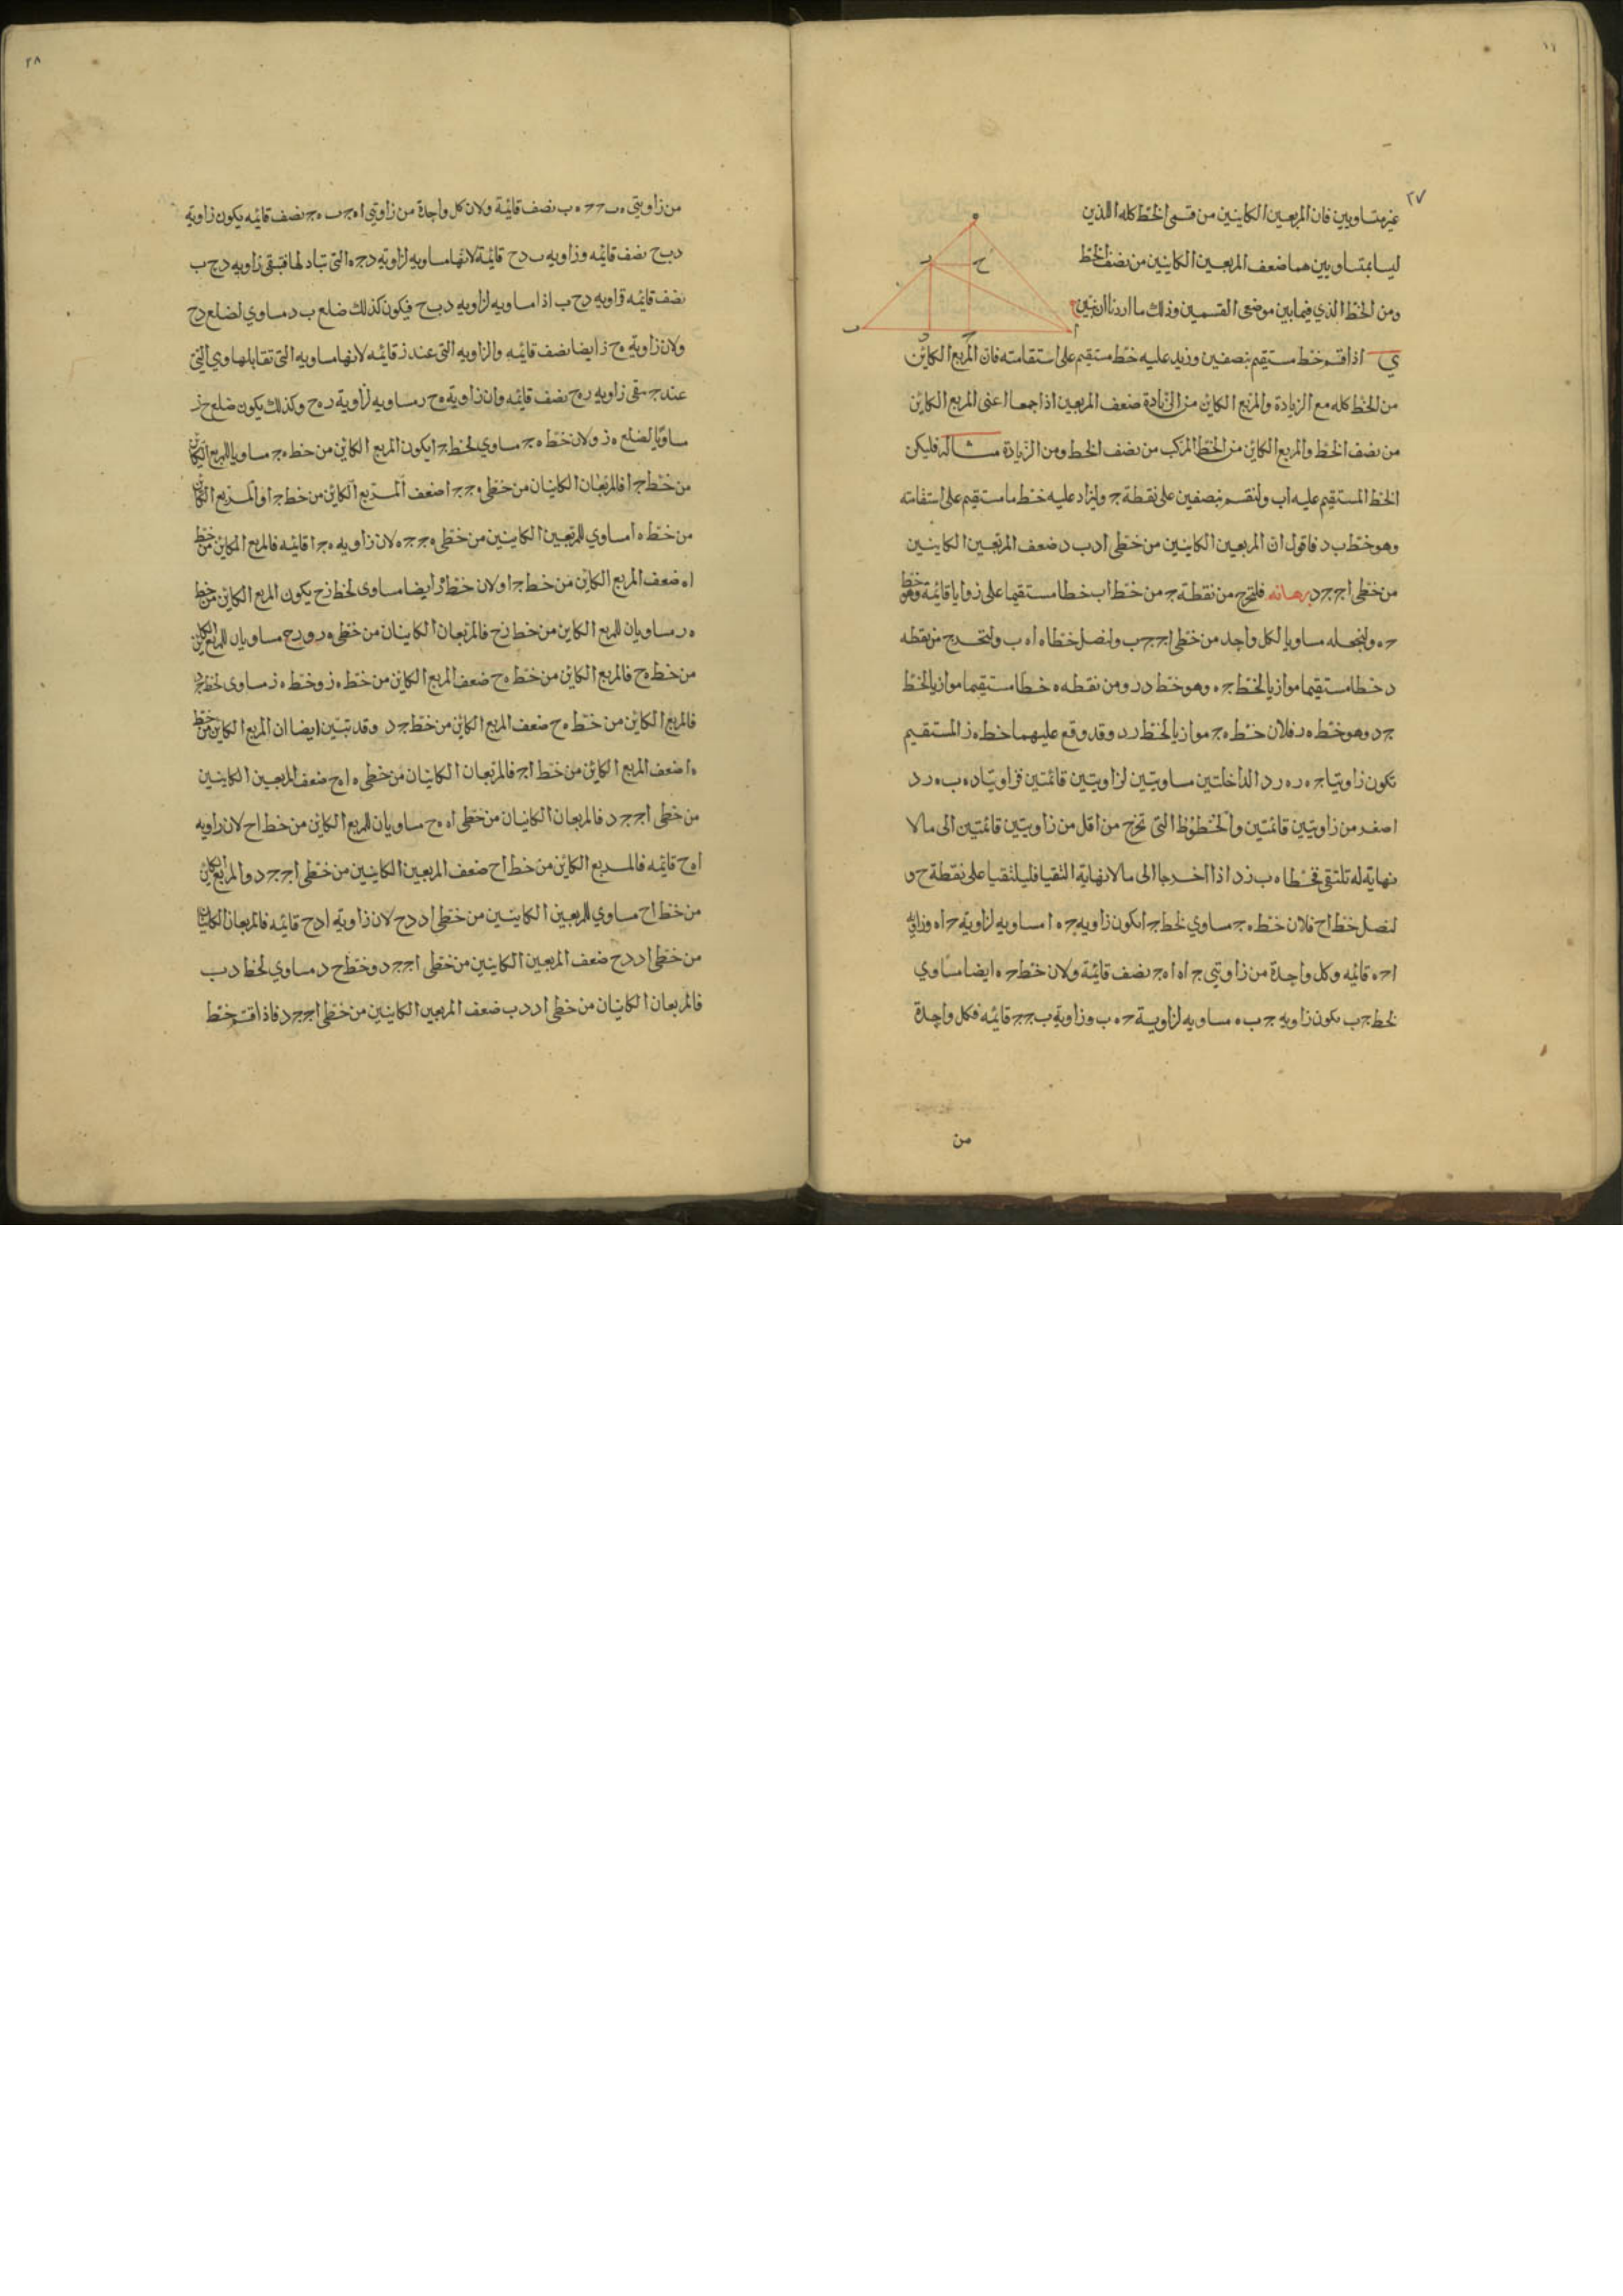 ٢٧
غير متساويين فان المربعين الكاينين من قسمى الخط كله اللذين
ليسا بمتساويين هما ضعف المربعين الكاينين من نصف الخط
ومن الخط الذي فيما بين موضعى القسمين وذلك ما اردنا ان نبين
ي اذا قسم خط مستقيم بنصفين وزيد عليه خط مستقيم على استقامته فان المربع الكائن
من الخط كله مع الزيادة والمربع الكائن من الزيادة ضعف المربعين اذا جمعا اعنى المربع الكائن
من نصف الخط والمربع الكائن من الخط المركب من نصف الخط ومن الزيادة مثاله فليكن
الخط المستقيم عليه اب ولنقسم بنصفين على نقطة ج وليزاد عليه خط ما مستقيم على استقامته
وهو خط ب د فاقول ان المربعين الكاينين من خطى اد ب د ضعف المربعين الكاينين
من خطى اج ج د برهانه فلنخرج من نقطة ج من خط اب خطا مستقيما على زوايا قائمة وهو خط
ج ه ولنجعله مساويا لكل واحد من خطى اج ج ب ولنصل خطا ه ا ه ب ولنخرج من نقطه
د خطا مستقيما موازيا لخط ج ه وهو خط د ر ومن نقطه ه خطا مستقيما موازيا لخط
ج د وهو خط ه ر فلان خط ه ج موازيا لخط ر د وقد وقع عليهما خط ه ز المستقيم
تكون زاويتا ج ه ر ه ر د الداخلتين مساويتين لزاويتين قائمتين فزاويتا د ه ب ه ر د
اصغر من زاويتين قائمتين والخطوط التى تخرج من اقل من زاويتين قائمتين الى ما لا
نهاية له تلتقى فخطا ه ب ز د اذا اخرجا الى ما لا نهاية التقيا فليلتقيا على نقطة ح و
لنصل خط اح فلان خط ه ج مساوي لخط ج ا تكون زاويه ج ه ا مساويه لزاوية ج ا ه وزاويه
ا ج ه قائمه وكل واحدة من زاوتي ج ا ه ا ه ج نصف قائمة ولان خط ج ه ايضا مساوي
لخط ج ب تكون زاويه ج ب ه مساويه لزاوية ج ه ب وزاوية ب ج ه قائمه فكل واحدة
من
٢٨
من زاويتى ه ب ج ج ه ب نصف قائمة ولان كل واحدة من زاوتي ا ه ج ب ه ج نصف قائمه يكون زاوية
د ب ح نصف قائمه وزاويه ب د ح قائمة لانها مساويه لزاوية د ج ه التى تبادلها فتبقى زاويه د ح ب
نصف قائمه فزاويه د ح ب اذا مساويه لزاويه د ب ح فيكون كذلك ضلع ب د مساوي لضلع د ح
ولان زاوية ه ح ز ايضا نصف قائمه والزاويه التى عند ز قائمه لانها مساويه التى تقابلها وهي التي
عند ج تبقى زاويه ر ه ح نصف قائمه وان زاوية ه ح ر مساويه لزاوية ر ه ح وكذلك يكون ضلع ح ز
مساويا لضلع ه ز ولان خط ه ج مساوي لخط ج ا يكون المربع الكائن من خط ه ج مساويا للمربع الكائن
من خط ج ا فالمربعان الكاينان من خطى ه ج ج ا ضعف المربع الكائن من خط ج ا والمربع الكائن
من خط ه ا مساوي للمربعين الكاينين من خطى ه ج ج ه لان زاويه ه ج ا قائمه فالمربع الكاين من خط
ا ه ضعف المربع الكائن من خط ج ا ولان خط ه ز ايضا مساوى لخط ز ح يكون المربع الكاين من خط
ه ر مساويان للمربع الكاين من خط ز ح فالمربعان الكاينان من خطى ه ر و ر ح مساويان للمربع الكاين
من خط ه ح فالمربع الكاين من خط ه ح ضعف المربع الكاين من خط ه ز وخط ه ز مساوى لخط ج د
فالمربع الكائن من خط ه ح ضعف المربع الكائن من خط ج د وقد تبين ايضا ان المربع الكاين من خط
ه ا ضعف المربع الكائن من خط اج فالمربعان الكاينان من خطى ه ا ه ح ضعف المربعين الكاينين
من خطى اج ج د فالمربعان الكاينان من خطى ا ه ه ح مساويان للمربع الكاين من خط اح لان زاويه
ا ه ح قائمه فالمربع الكائن من خط اح ضعف المربعين الكاينين من خطى اج ج د والمربع الكاين
من خط اح مساوي للمربعين الكاينين من خطى اد د ح لان زاوية ا د ح قائمه فالمربعان الكاينان
من خطى اد د ح ضعف المربعين الكاينين من خطى اج ج د وخط ح د مساوي لخط د ب
فالمربعان الكاينان من خطى اد د ب ضعف المربعين الكاينين من خطى اج ج د فاذا قسم خط